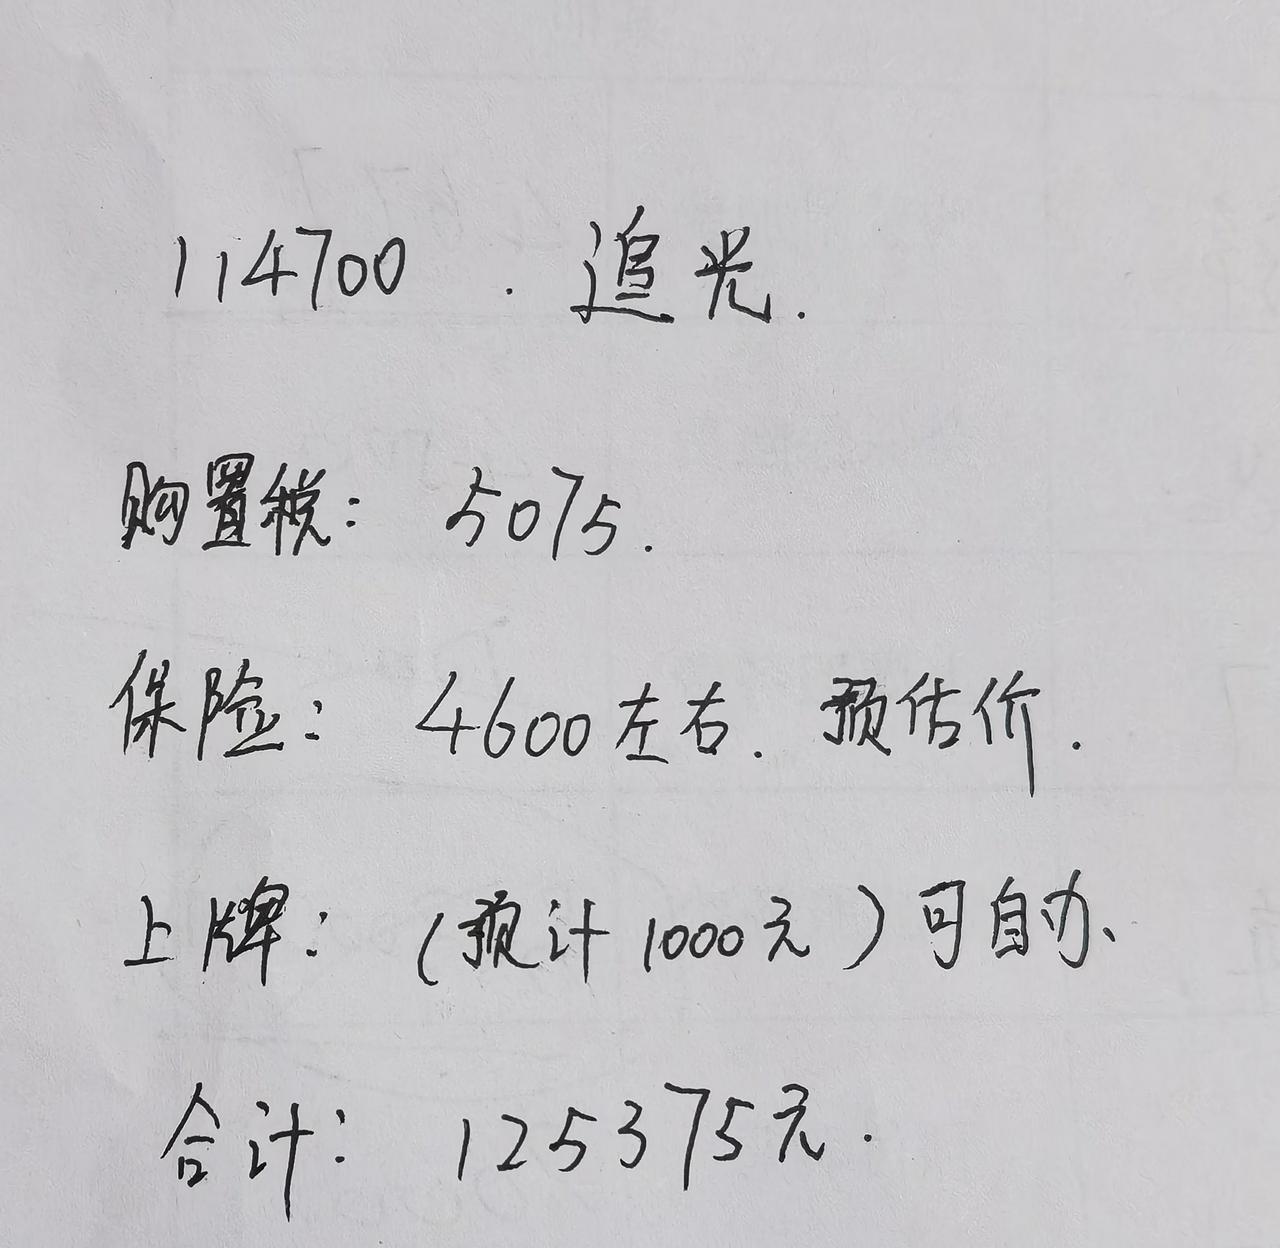 114700 . 追光.
购置税: 5075.
保险: 4600左右. 预估价.
上牌: (预计1000元)可自办、
合计: 125375元.